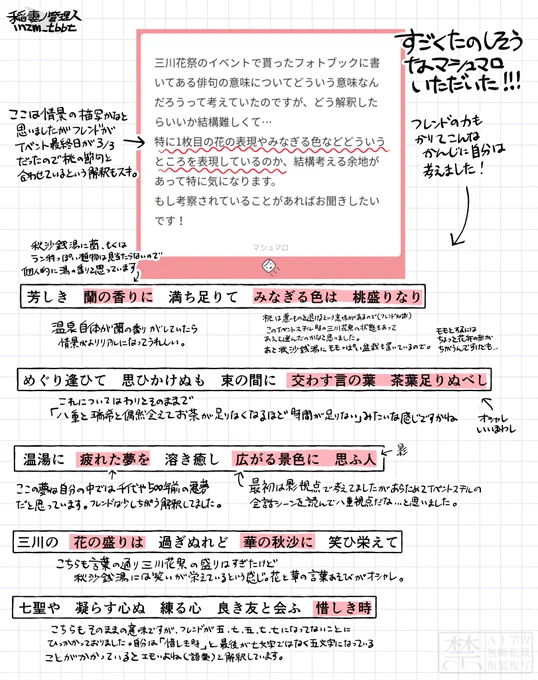 稲妻ノ管理人
inzm_tbbt
すごくたのしそう
なマシュマロ
いただいた!!!
三川花祭のイベントで貰ったフォトブックに書
いてある俳句の意味についてどういう意味なん
だろうって考えていたのですが、どう解釈した
らいいか結構難しくて…
特に1枚目の花の表現やみなぎる色などどういう
ところを表現しているのか、結構考える余地が
あって特に気になります。
もし考察されていることがあればお聞きしたい
です!
マシュマロ
ここは情景の描写かなと
思いましたがフレンドが
イベント最終日が3/3
だったので桃の節句と
合わせているという解釈もスキ。
フレンドの力も
かりてこんな
かんじに自分は
考えました!
秋沙銭湯に菌、もしくは
ラン科っぽい植物は見当たらないので
個人的に湯の香りと思っています
芳しき 蘭の香りに 満ち足りて みなぎる色は 桃盛りなり
温泉自体が蘭の香りがしていたら
情景がよりリアルになってうれしい。
あと秋沙銭湯にモモっぽい盆栽も置いているので。
めぐり逢ひて 思ひかけぬも 束の間に 交わす言の葉 茶葉足りぬべし
これについてはわりとそのままで
「八重と瑞希と偶然会えてお茶が足りなくなるほど時間が足りない」みたいな感じですかね
オシャレ
いいまわし
温湯に 疲れた夢を 溶き癒し 広がる景色に 思ふ人
影
ここの夢は自分の中では千代や500年前の悪夢
だと思っています。フレンドは少しちがう解釈してました。
最初は影視点で考えてましたがあらためてイベントスチルの
会話シーンを読んで八重視点だな…と思いました。
三川の 花の盛りは 過ぎぬれど 華の秋沙に 笑ひ栄えて
こちらも言葉の通り三川花祭の盛りはすぎたけど
秋沙銭湯には笑いが栄えているという感じ。花と華の言葉あそびがオシャレ。
七聖や 凝らす心ぬ 練る心 良き友と会ふ 惜しき時
こちらもそのままの意味ですが、フレンドが五、七、五、七、七になってないことに
ひっかかっておりました。自分は「惜しき時」と最後が七文字ではなく五文字になっている
ことがかかっているとエモいよね(語彙)と解釈しています。
禁
AI学習
無断転載
複製複写